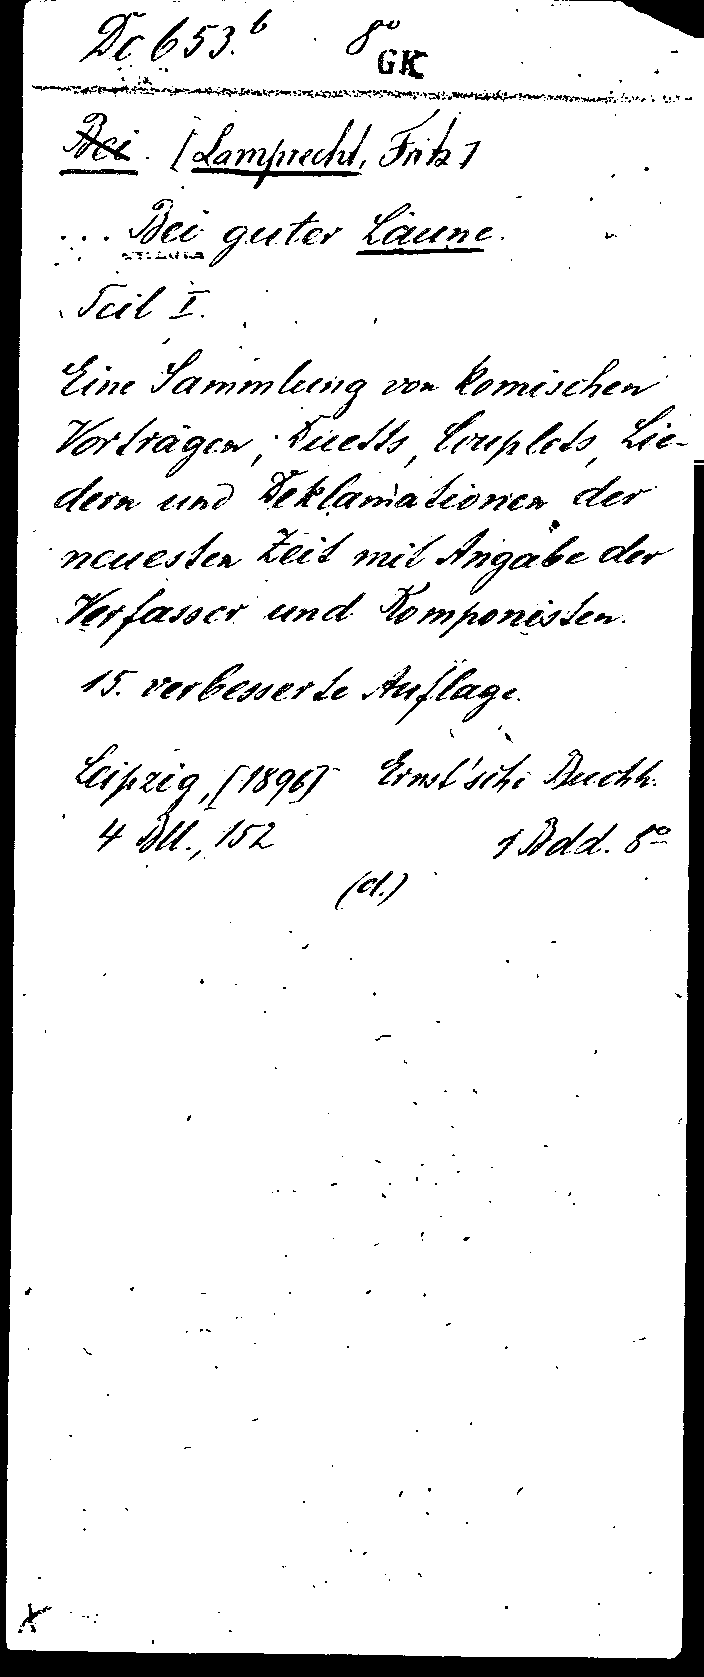 Dc 653.b 8o
GK
Bei. [Lamprecht, Fritz]
... Bei guter Laune.
Teil I.
Eine Sammlung von komischen
Vorträgen, Duetts, Couplets, Lie-
dern und Deklamationen der
neuesten Zeit mit Angabe der
Verfasser und Komponisten.
15. verbesserte Auflage.
Leipzig, [1896] Ernst'sche Buchh.
4 Bll., 152 1 Bdd. 8o
(d.)